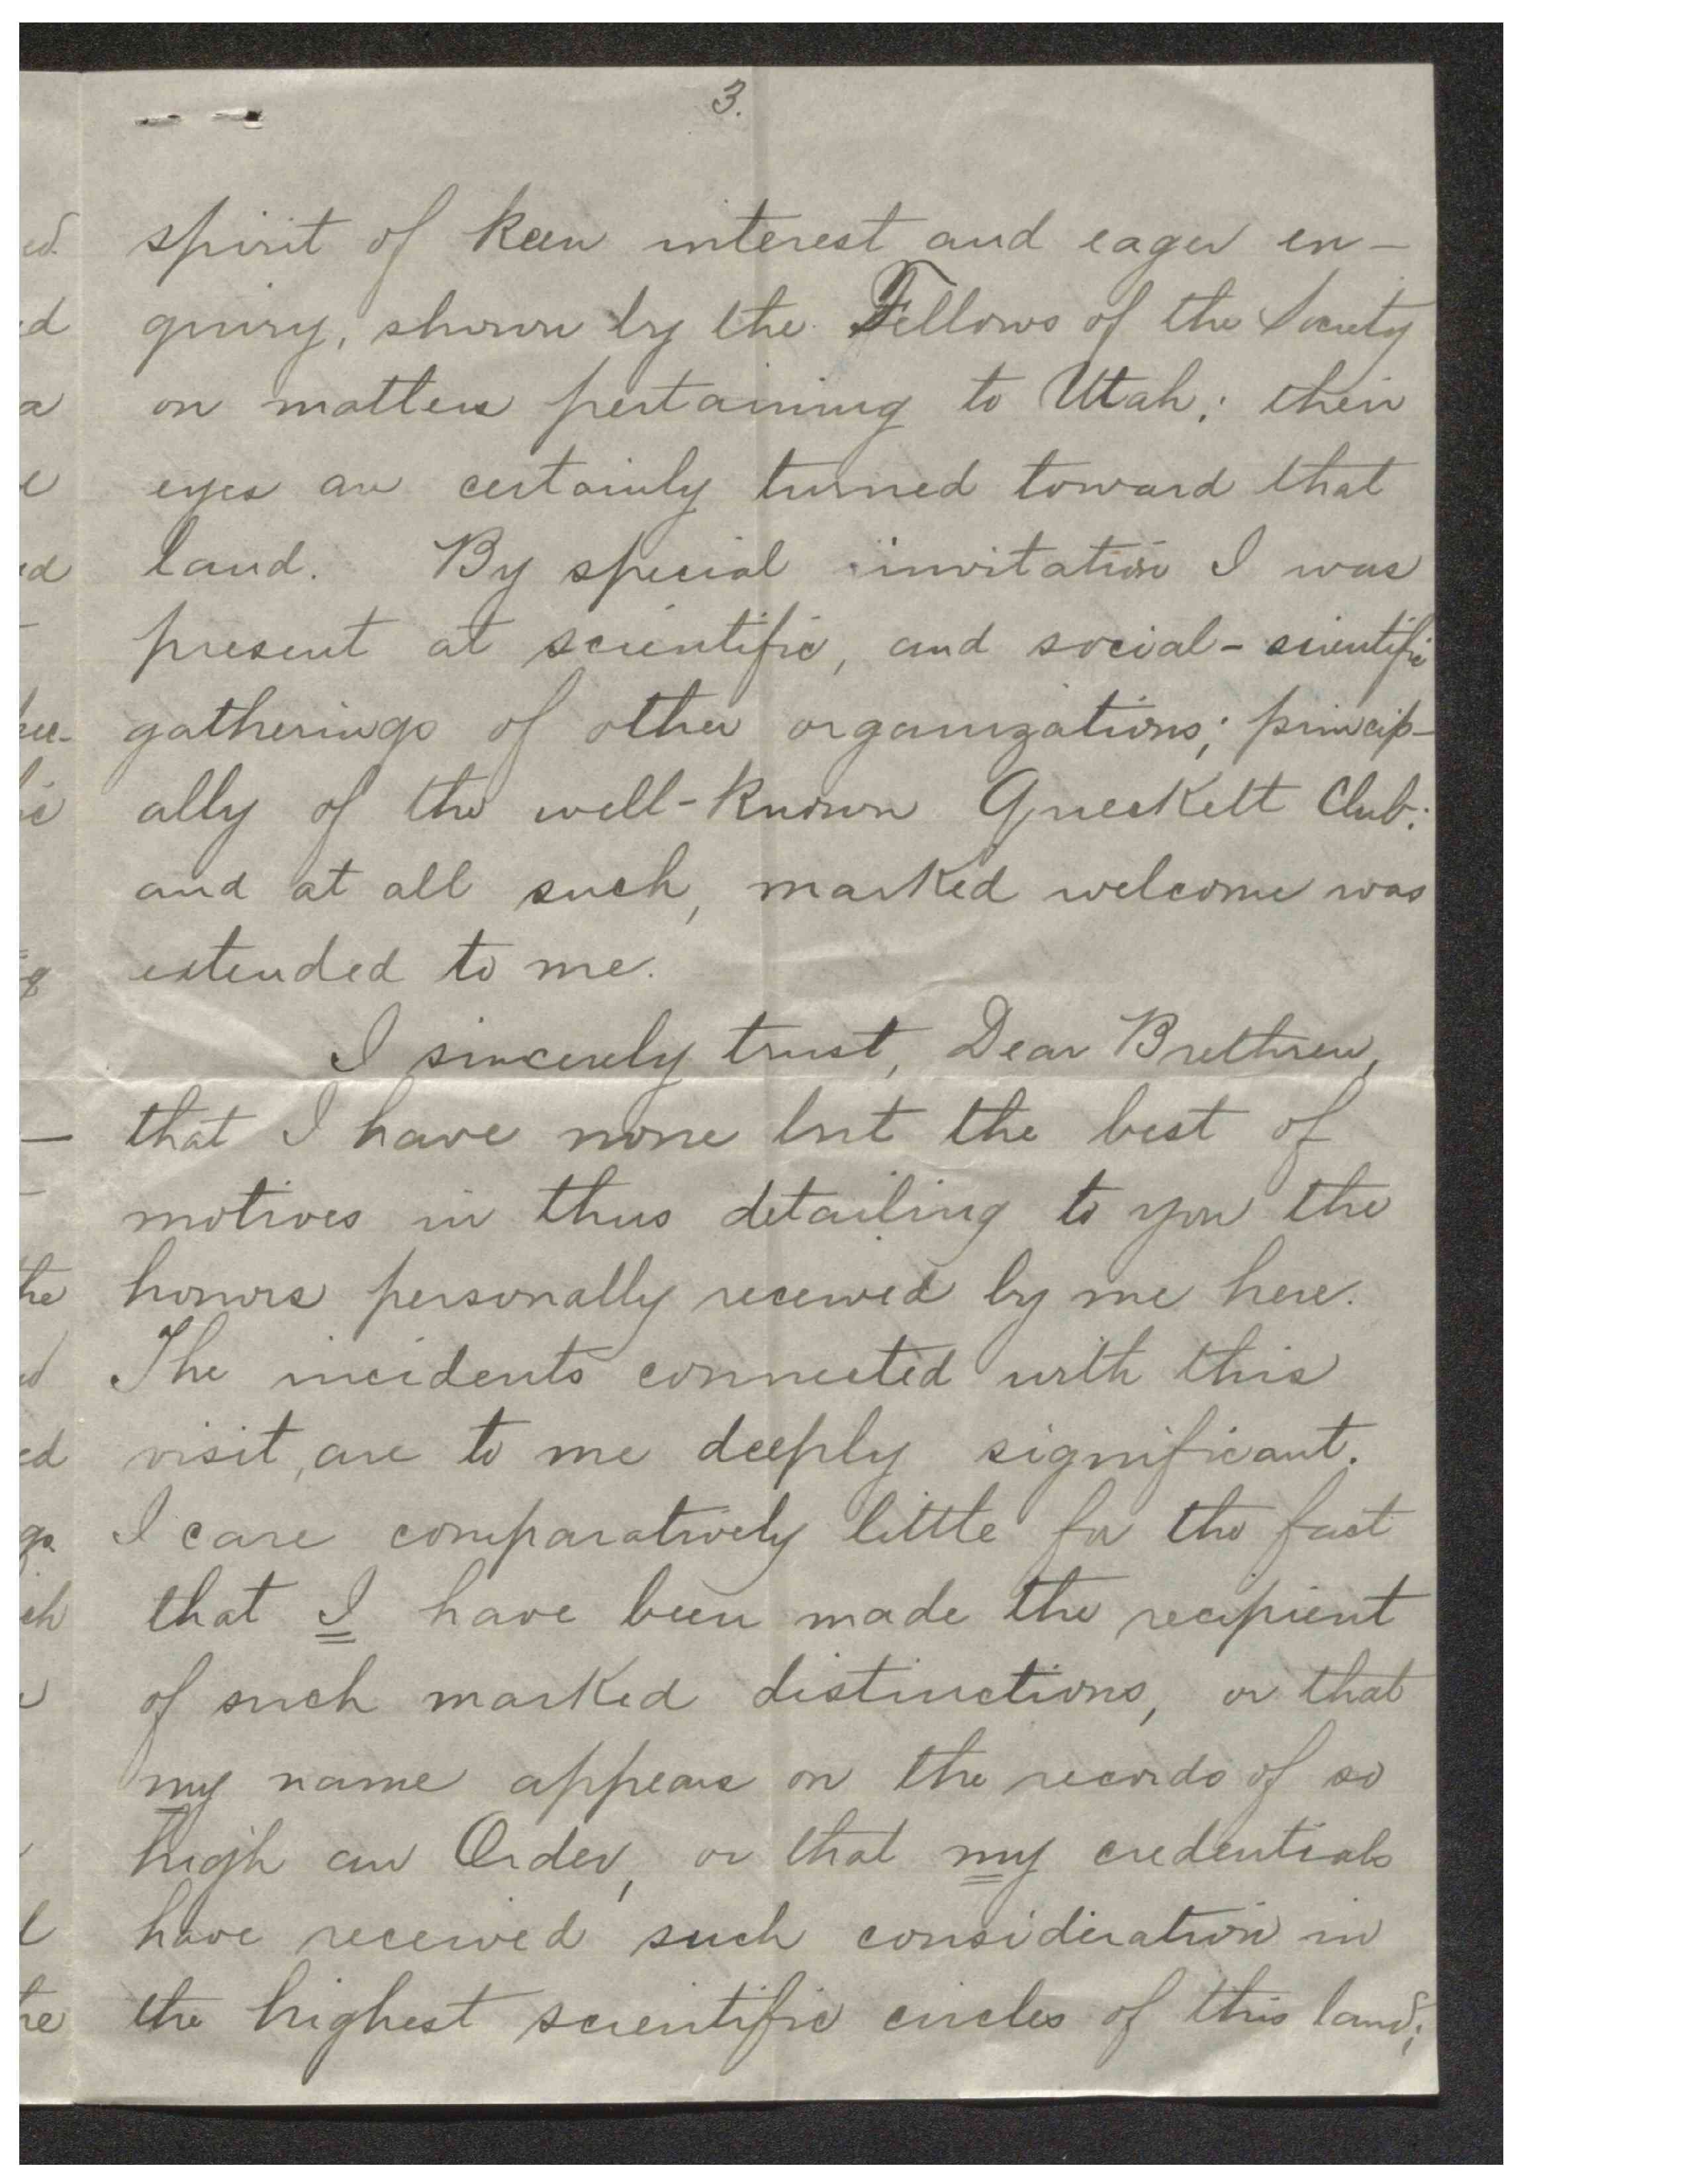 3.
spirit of keen interest and eager en-
quiry, shown by the Fellows of the Society
on matters pertaining to Utah; their
eyes are certainly turned toward that
land. By special invitation I was
present at scientific, and social-scientific
gatherings of other organizations; princip-
ally of the well-known Queckett Club:
and at all such, marked welcome was
extended to me.
I sincerely trust, Dear Brethren,
that I have none but the best of
motives in thus detailing to you the
honors personally received by me here.
The incidents connected with this
visit, are to me deeply significant.
I care comparatively little for the fact
that I have been made the recipient
of such marked distinctions, or that
my name appears on the records of so
high an Order, or that my credentials
have received such consideration in
the highest scientific circles of this land;